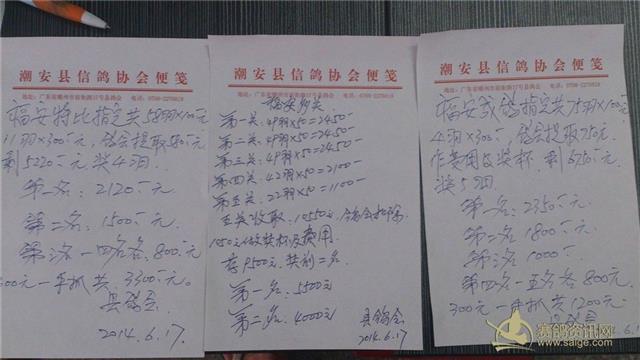 潮安县信鸽协会便笺
福安特比指定共58羽×100元
11羽×300元,鸽会提取580元
剩5220元,奖4羽.
第一名:2120元.
第二名:1500元
第三名-四名各800元
300元一手抓共3300元.
县鸽会
2014.6.17.
潮安县信鸽协会便笺
福安多关
第一关:49羽×50=2450-
第二关:49羽×50=2450-
第三关:49羽×50=2450-
第四关:42羽×50=2100-
第五关:22羽×50=1100-
五关收取:10550元,鸽会扣除
1050元做奖杯及费用
存9500元.奖前二名
第一名:5500元
第二名:4000元
县鸽会
2014.6.17.
潮安县信鸽协会便笺
福安成鸽指定共75羽×100元
4羽×300元,鸽会提取750元
作费用及奖杯.剩6750元
奖5羽
第一名:2350元
第二名:1800元
第三名1000元
第四名-五名各800元
300元一手抓共1200元
县鸽会
2014.6.17
赛鸽资讯网
www.saige.com